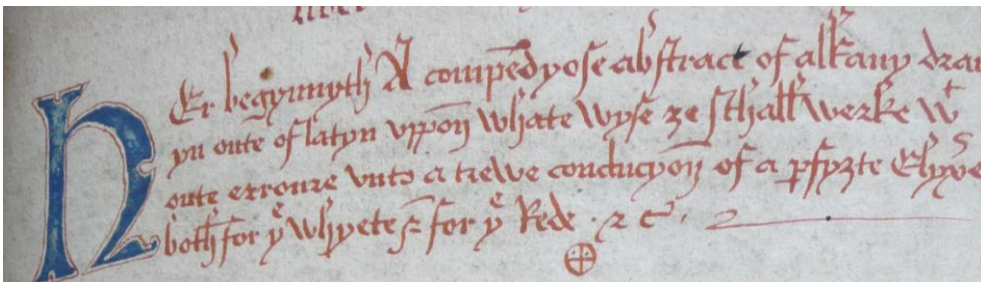 HEr begynnyth A compēdyose abstract of alkamy drau
yn oute of latyn vppon whate wyse ȝe schall werke wᵗ
oute erroure vnto a trewe conducyon of a ꝑfyȝte Elyxeˢ
both for yᵉ whyete & for yᵉ Rede · ⁊ cᵗ ·